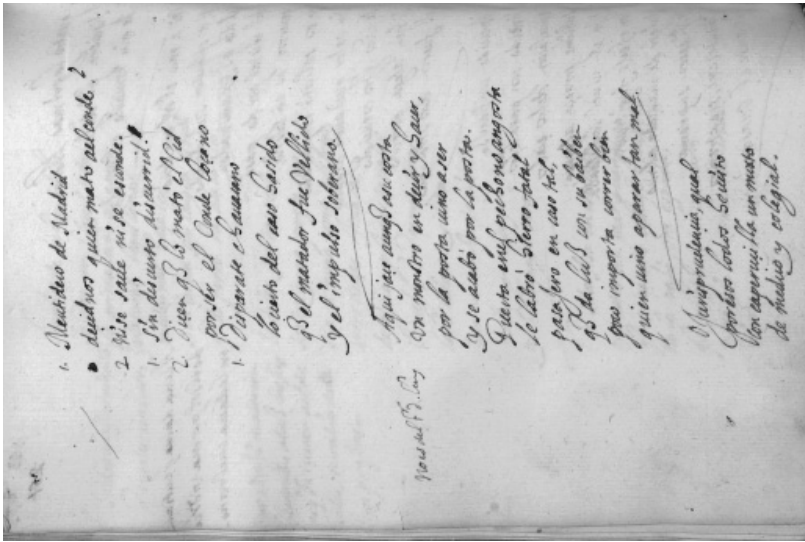 1. Mentidero de Madrid
decidnos quien mato al conde?
2 ni se sabe ni se esconde.
1. sin discurso discurrid.
2. Dicen q̃ lo mató el Cid
por ser el Conde loçano
1. Disparate chauacano
lo cierto del caso ha sido
q̃ el matador fue Vellido
y el impulso soberano.
Aqui jace aunq̃ a su costa
Un monstro en decir y hacer,
por la posta vino a ser
y se acabó por la posta.
Puerta en el pecho no angosta
le labró hierro fatal
pasajero en caso tal,
q̃ la luz con su
poco importa correr bien
quien vino a parar tan mal.
Jurisprudencia, qual
Con caperuzilla un mato
de medico y colegial.